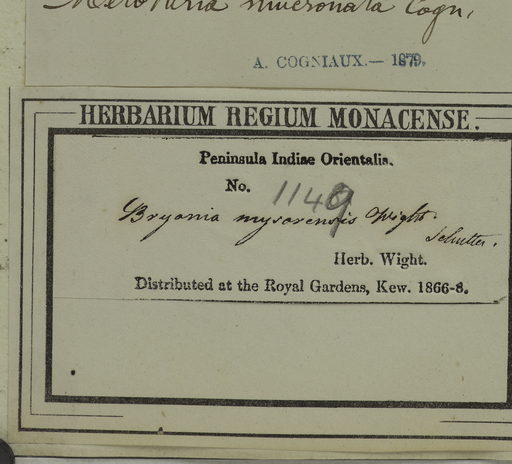 Melothria mucronata Cogn.
A. COGNIAUX.— 1879.
HERBARIUM REGIUM MONACENSE.
Peninsula Indiae Orientalis.
No. 1149
Bryonia mysorensis Wight.
Herb. Wight.
Distributed at the Royal Gardens, Kew. 1866-8.